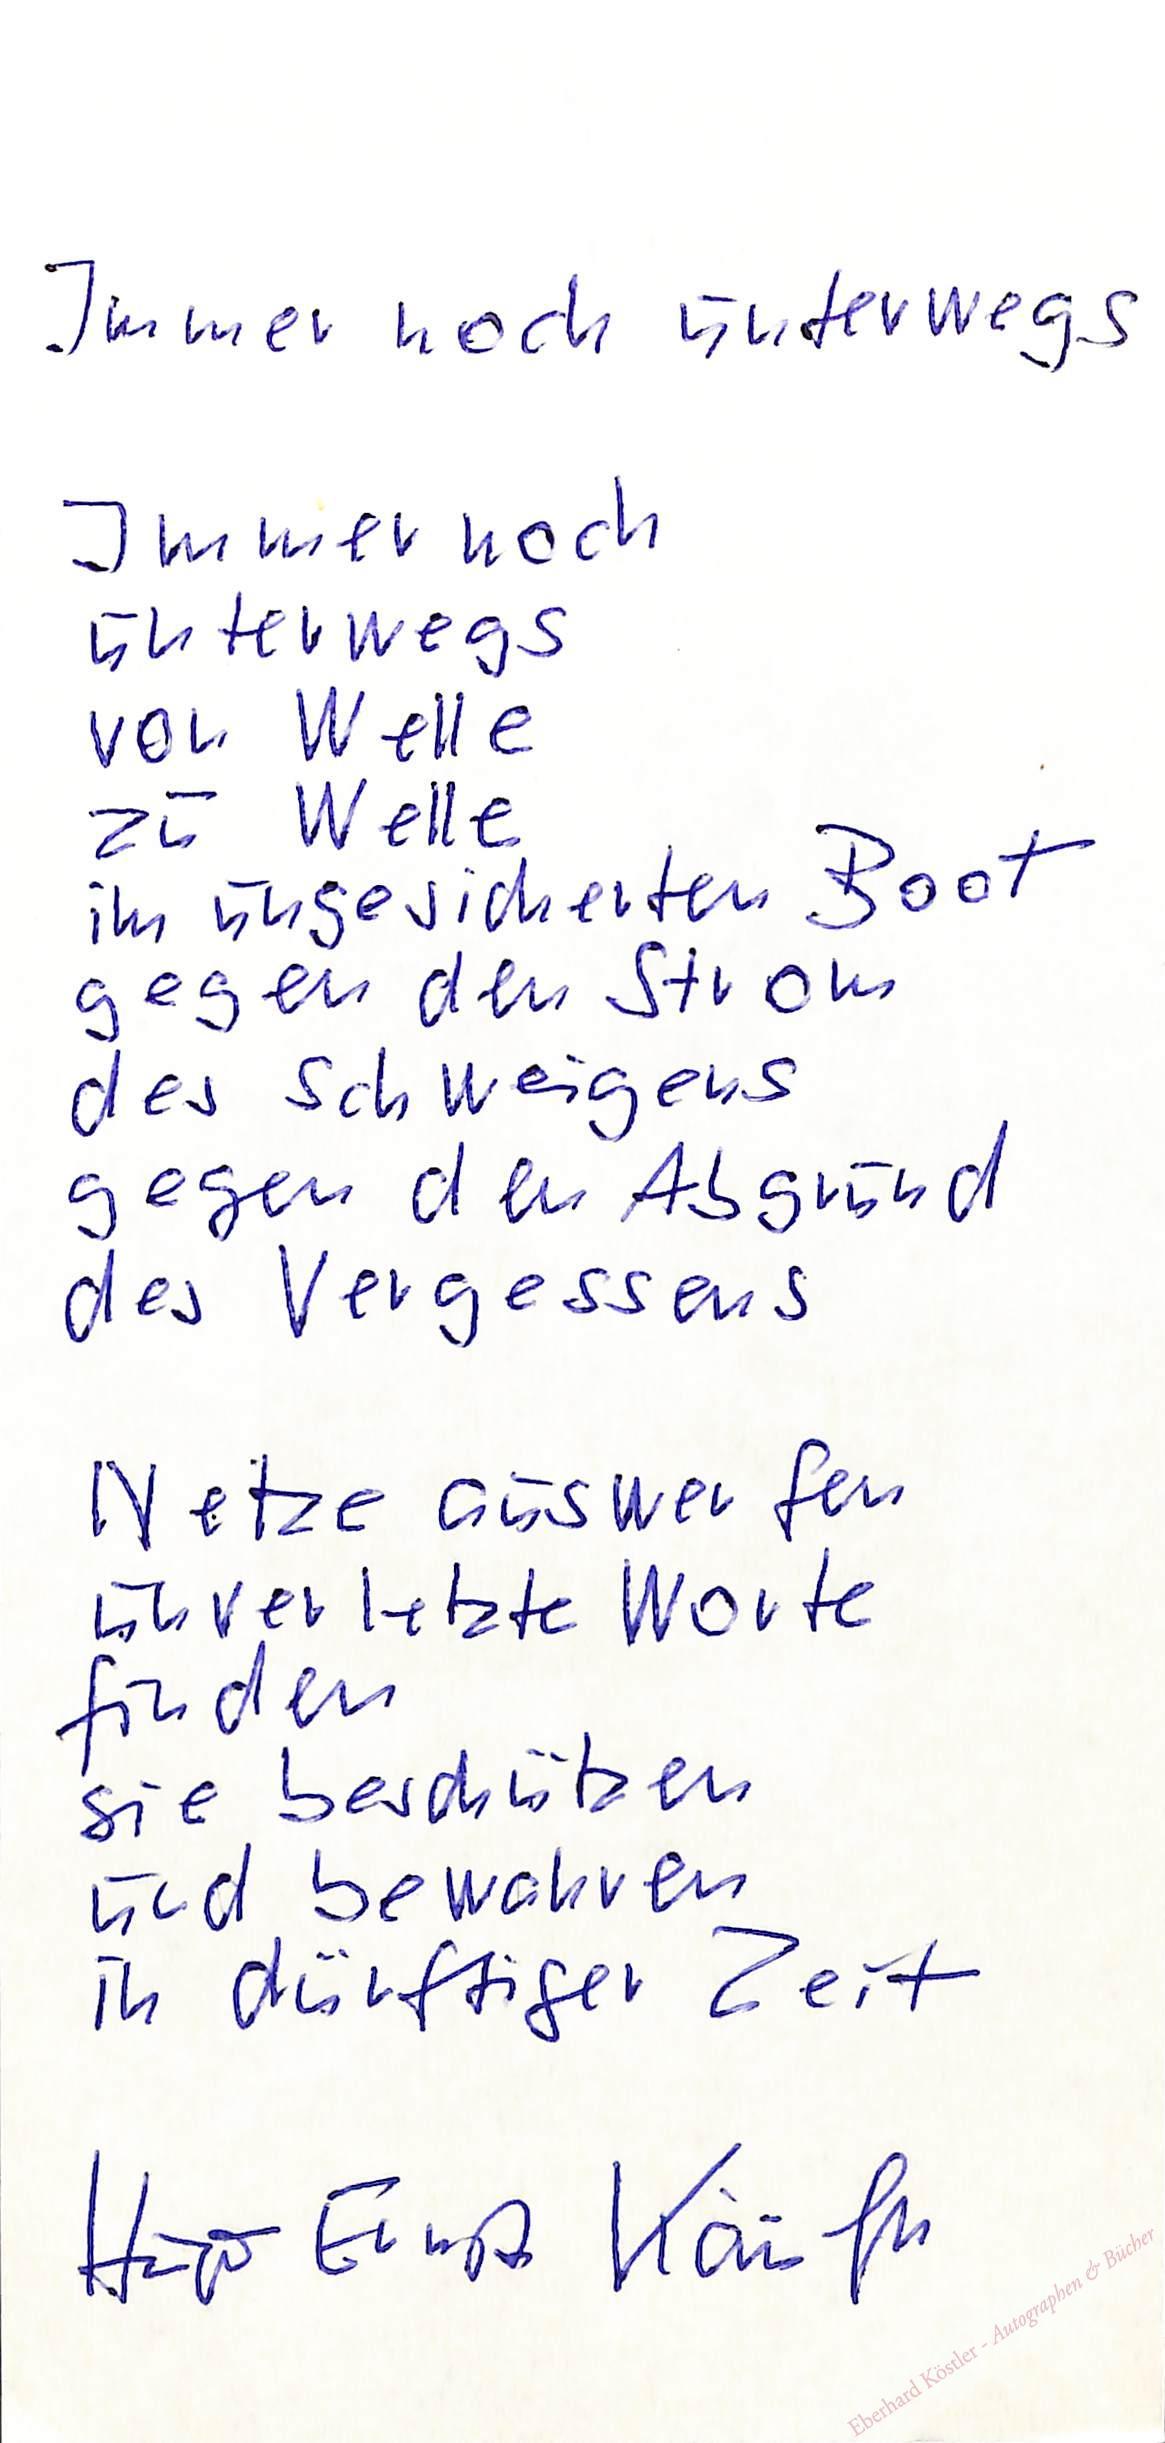 Immer noch unterwegs
Immer noch
unterwegs
von Welle
zu Welle
im ungesicherten Boot
gegen den Strom
des Schweigens
gegen den Abgrund
des Vergessens
Netze auswerfen
unverletzte Worte
finden
sie beschützen
und bewahren
in dürftiger Zeit
Hugo Ernst Käufer
Eberhard Köstler - Autographen & Bücher